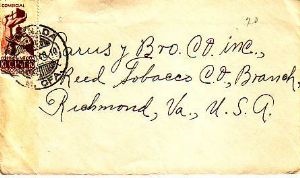 COMERCIAL
20
Larus y Bro. CO. inc.,
Reed Tobacco CO, Branch,
Richmond, Va., U. S. A.